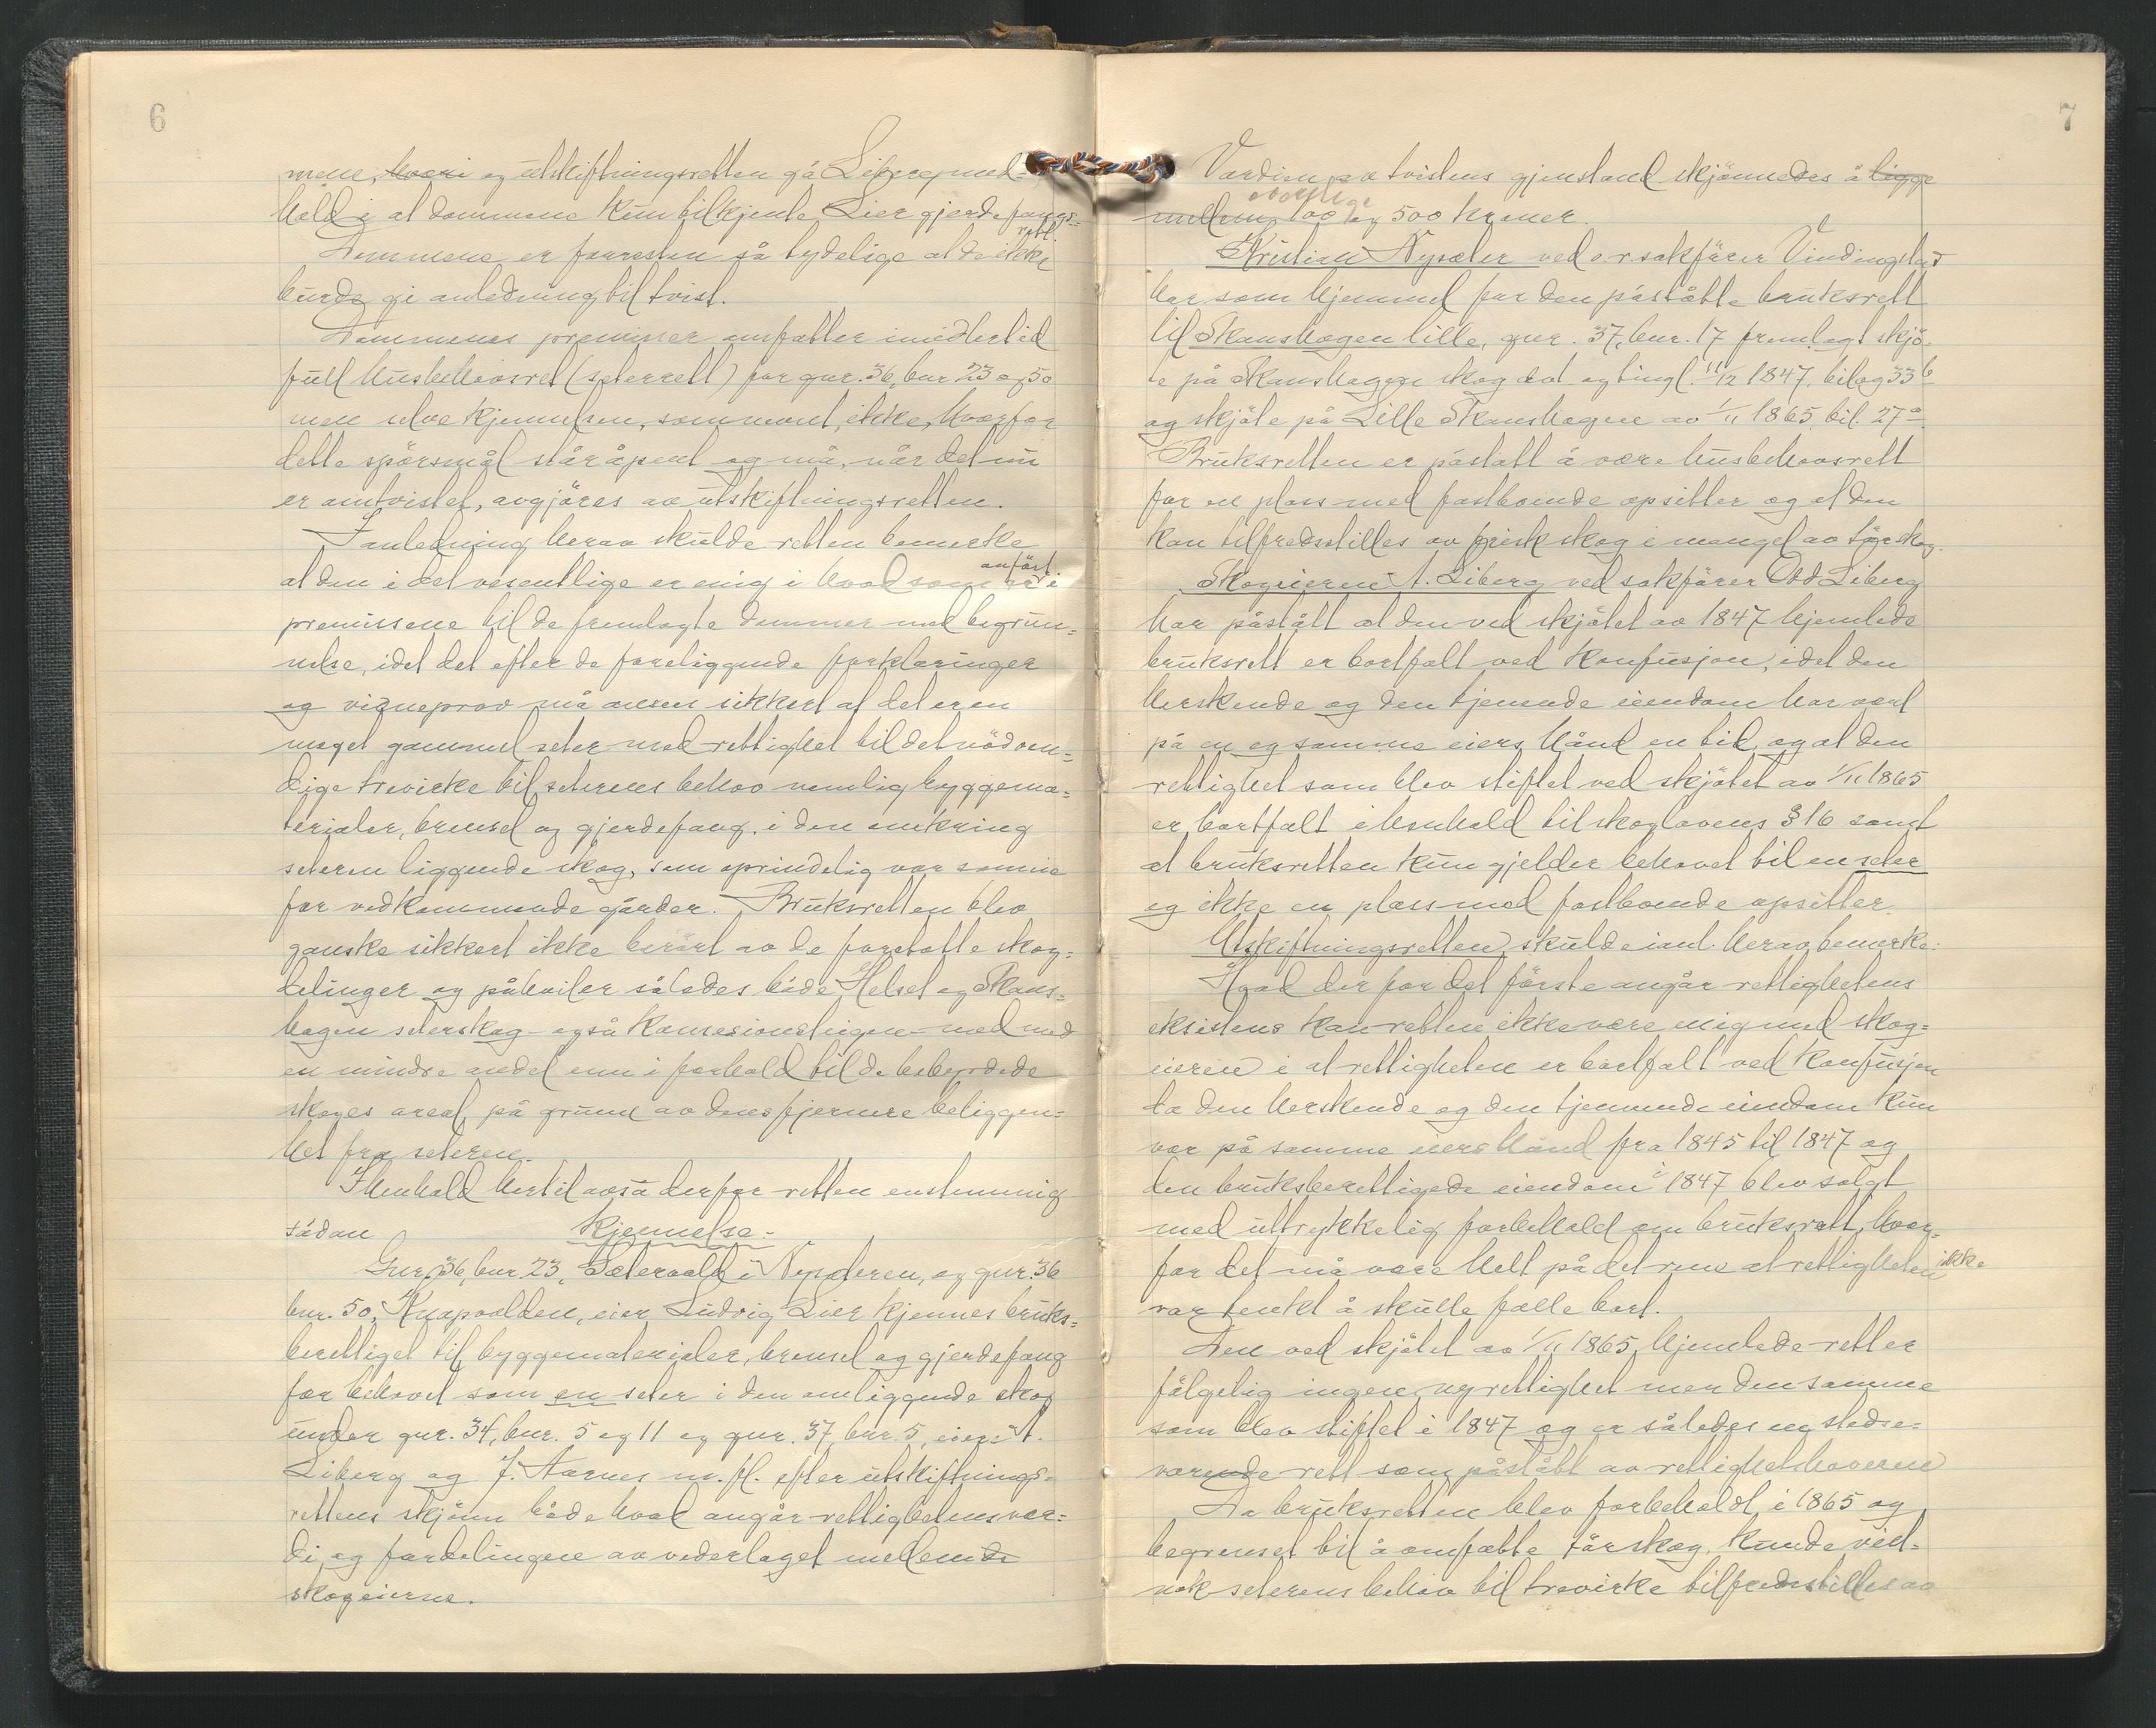 6
mene, hvori og utskiftningsretten gå Liberg med-
hold i at dommene kun tilkjente Lier gjerdefangs-
rett
Dommene er forresten så tydelige at de ikke
burde gi anledning til tvist.
Dommenes premisser omfatter imidlertid
full husbehovsret (seterrett) for gnr. 36, bnr 23 og 50
men selve kjennelsen, som nevnt, ikke, hvorfor
dette spörsmål står åpent og må, når det nu
er omtvistet, avgjöres av utskiftningsretten.
I anledning herav skulde retten bemerke
at den i det vesentlige er enig i hvad som er anfört i
premissene til de fremlagte dommer med begrun=
nelse, idet det efter de foreliggende forklaringer
og vidneprov må ansees sikkert at det er en
meget gammel seter med rettighet til det nödven=
dige trevirke til seterens behov nemlig byggema=
terialer, brensel og gjerdefang, i den omkring
seteren liggende skog, som oprindelig var samme
for vedkommende gårder. Bruksretten blev
ganske sikkert ikke berört av de foretatte skog=
delinger og påhviler således både Helset og Skans=
hagen seterskog - også konsesionsteigen - med
en mindre andel enn i forhold til de bebyrdede
skoges areal, på grunn av dens fjernere beliggen=
het fra seteren.
I henhold hertil avsa derfor retten enstemmig
sådan kjennelse:
Gnr. 36, bnr. 23, Sætervold i Nysæteren, og gnr. 36
bnr. 50, Knapvolden, eier Ludvig Lier kjennes bruks=
berettiget til byggematerialer, brensel og gjerdefang
for behovet som en seter i den omliggende skog
under gnr. 34, bnr. 5 og 11 og gnr. 37 bnr. 5, eiere A.
Liberg og J. Aarnes m. fl. efter utskiftnings-
rettens skjönn både hvad angår rettighetens ver=
di og fordelingen av vederlaget mellem de
skogeierne.
7
Verdien av tvistens gjenstand skjönnedes å ligge
mellem 100 og 500 kroner.
Kristian Nysæter ved o.r.sakförer Vindingstad
har som hjemmel for den påståtte bruksrett
til Skanshagen lille, gnr. 37, bnr. 17 fremlagt skjö-
te på Skanshagen skog dat. og tingl. 11/12 1847, bilag 33 b
og skjöte på Lille Skanshagen av 1/11 1865, bil. 27 a.
Bruksretten er påstått å være husbehovsrett
for en plass med fastboende opsitter og at den
kan tilfredsstilles av frisk skog i mangel av törskog.
Skogeieren A. Liberg ved sakförer Odd Liberg
har påstått at den ved skjötet av 1847 hjemlede
bruksrett er bortfalt ved konfusjon, idet den
herskende og den tjenende eiendom har vært
på en og samme eiers hånd en tid, og at den
rettighet som blev stiftet ved skjötet av 1/11 1865
er bortfalt i henhold til skoglovens § 16 samt
at bruksretten kun gjelder behovet til en seter
og ikke en plass med fastboende opsitter.
Utskiftningsretten skulde i anl. herav bemerke:
Hvad der for det förste angår rettighetens
eksistens kan retten ikke være enig med skog=
eieren i at rettigheten er bortfalt ved konfusjon
da den herskende og den tjenende eiendom kun
var på samme eiers hånd fra 1845 til 1847 og
den bruksberettigede eiendom i 1847 blev solgt
med uttrykkelig forbehold om bruksrett, hvor-
for det må være helt på det rene at rettigheten ikke
var tenkt å skulle falle bort.
Den ved skjötet av 1/11 1865 hjemlede rett er
fölgelig ingen ny rettighet men den samme
som blev stiftet i 1847 og er således en stedse=
varende rett som påstått av rettighetshaveren
Da bruksretten blev forbeholdt i 1865 og
begrenset til å omfatte törskog, kunde vist-
nok seterens behov til trevirke tilfredsstilles av